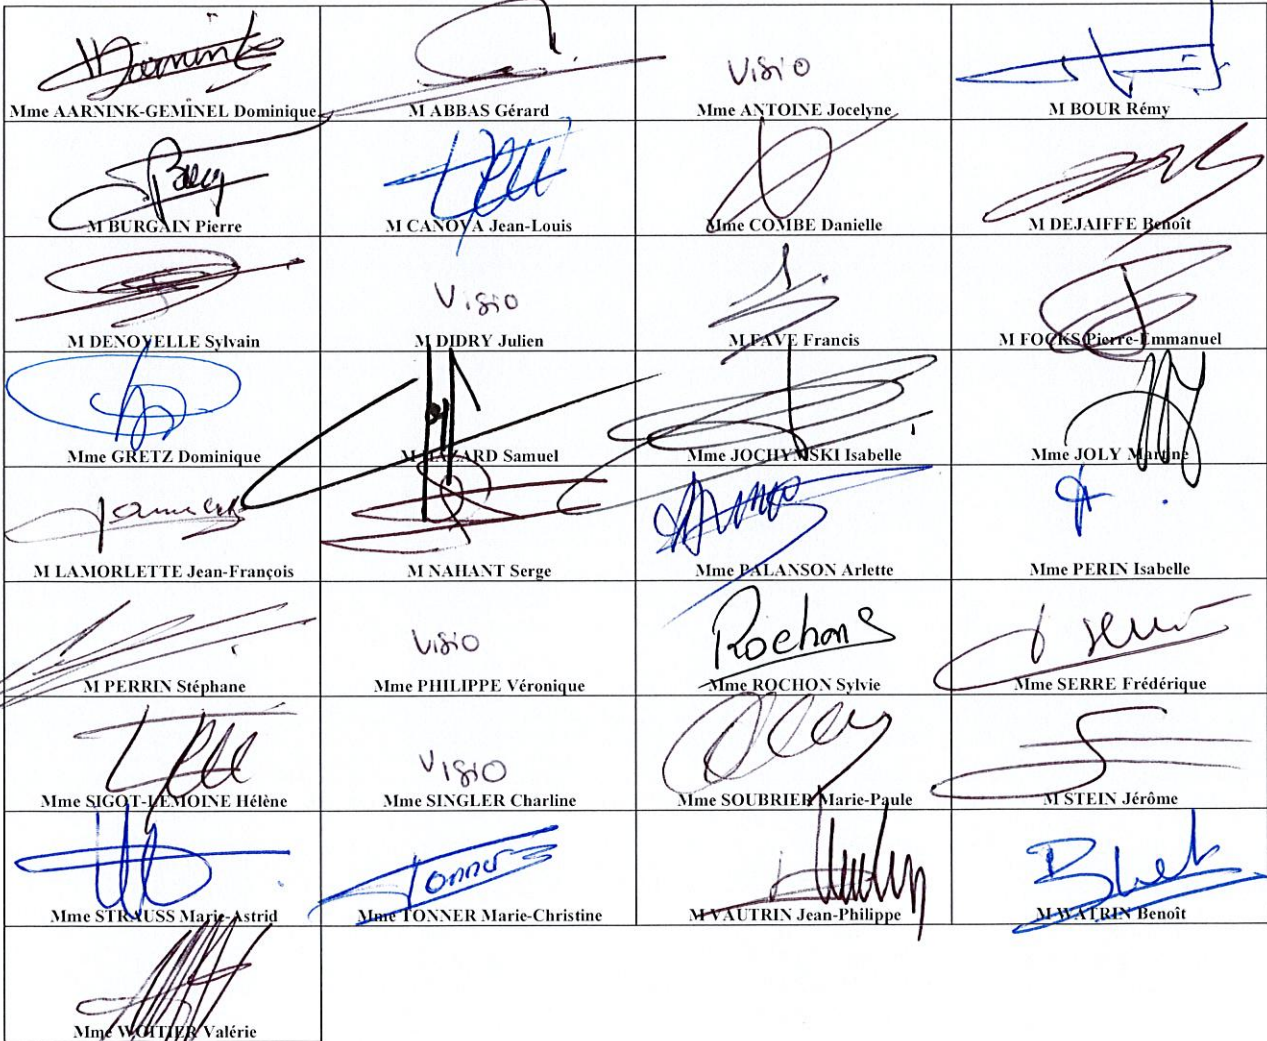 Mme AARNINK-GEMINEL Dominique
M ABBAS Gérard
Visio
Mme ANTOINE Jocelyne
M BOUR Rémy
M BURGAIN Pierre
M CANOVA Jean-Louis
Mme COMBE Danielle
M DEJAIFFE Benoît
M DENOYELLE Sylvain
Visio
M DIDRY Julien
M FAVE Francis
M FOCKS Pierre-Emmanuel
Mme GRETZ Dominique
M HAZARD Samuel
Mme JOCHYNSKI Isabelle
Mme JOLY Martine
M LAMORLETTE Jean-François
M NAHANT Serge
Mme PALANSON Arlette
Mme PERIN Isabelle
M PERRIN Stéphane
Visio
Mme PHILIPPE Véronique
Rochon S
Mme ROCHON Sylvie
Serre
Mme SERRE Frédérique
Mme SIGOT-LEMOINE Hélène
Visio
Mme SINGLER Charline
Mme SOUBRIER Marie-Paule
M STEIN Jérôme
Mme STRAUSS Marie-Astrid
Tonner
Mme TONNER Marie-Christine
M VAUTRIN Jean-Philippe
M WATRIN Benoît
Mme WOITIER Valérie